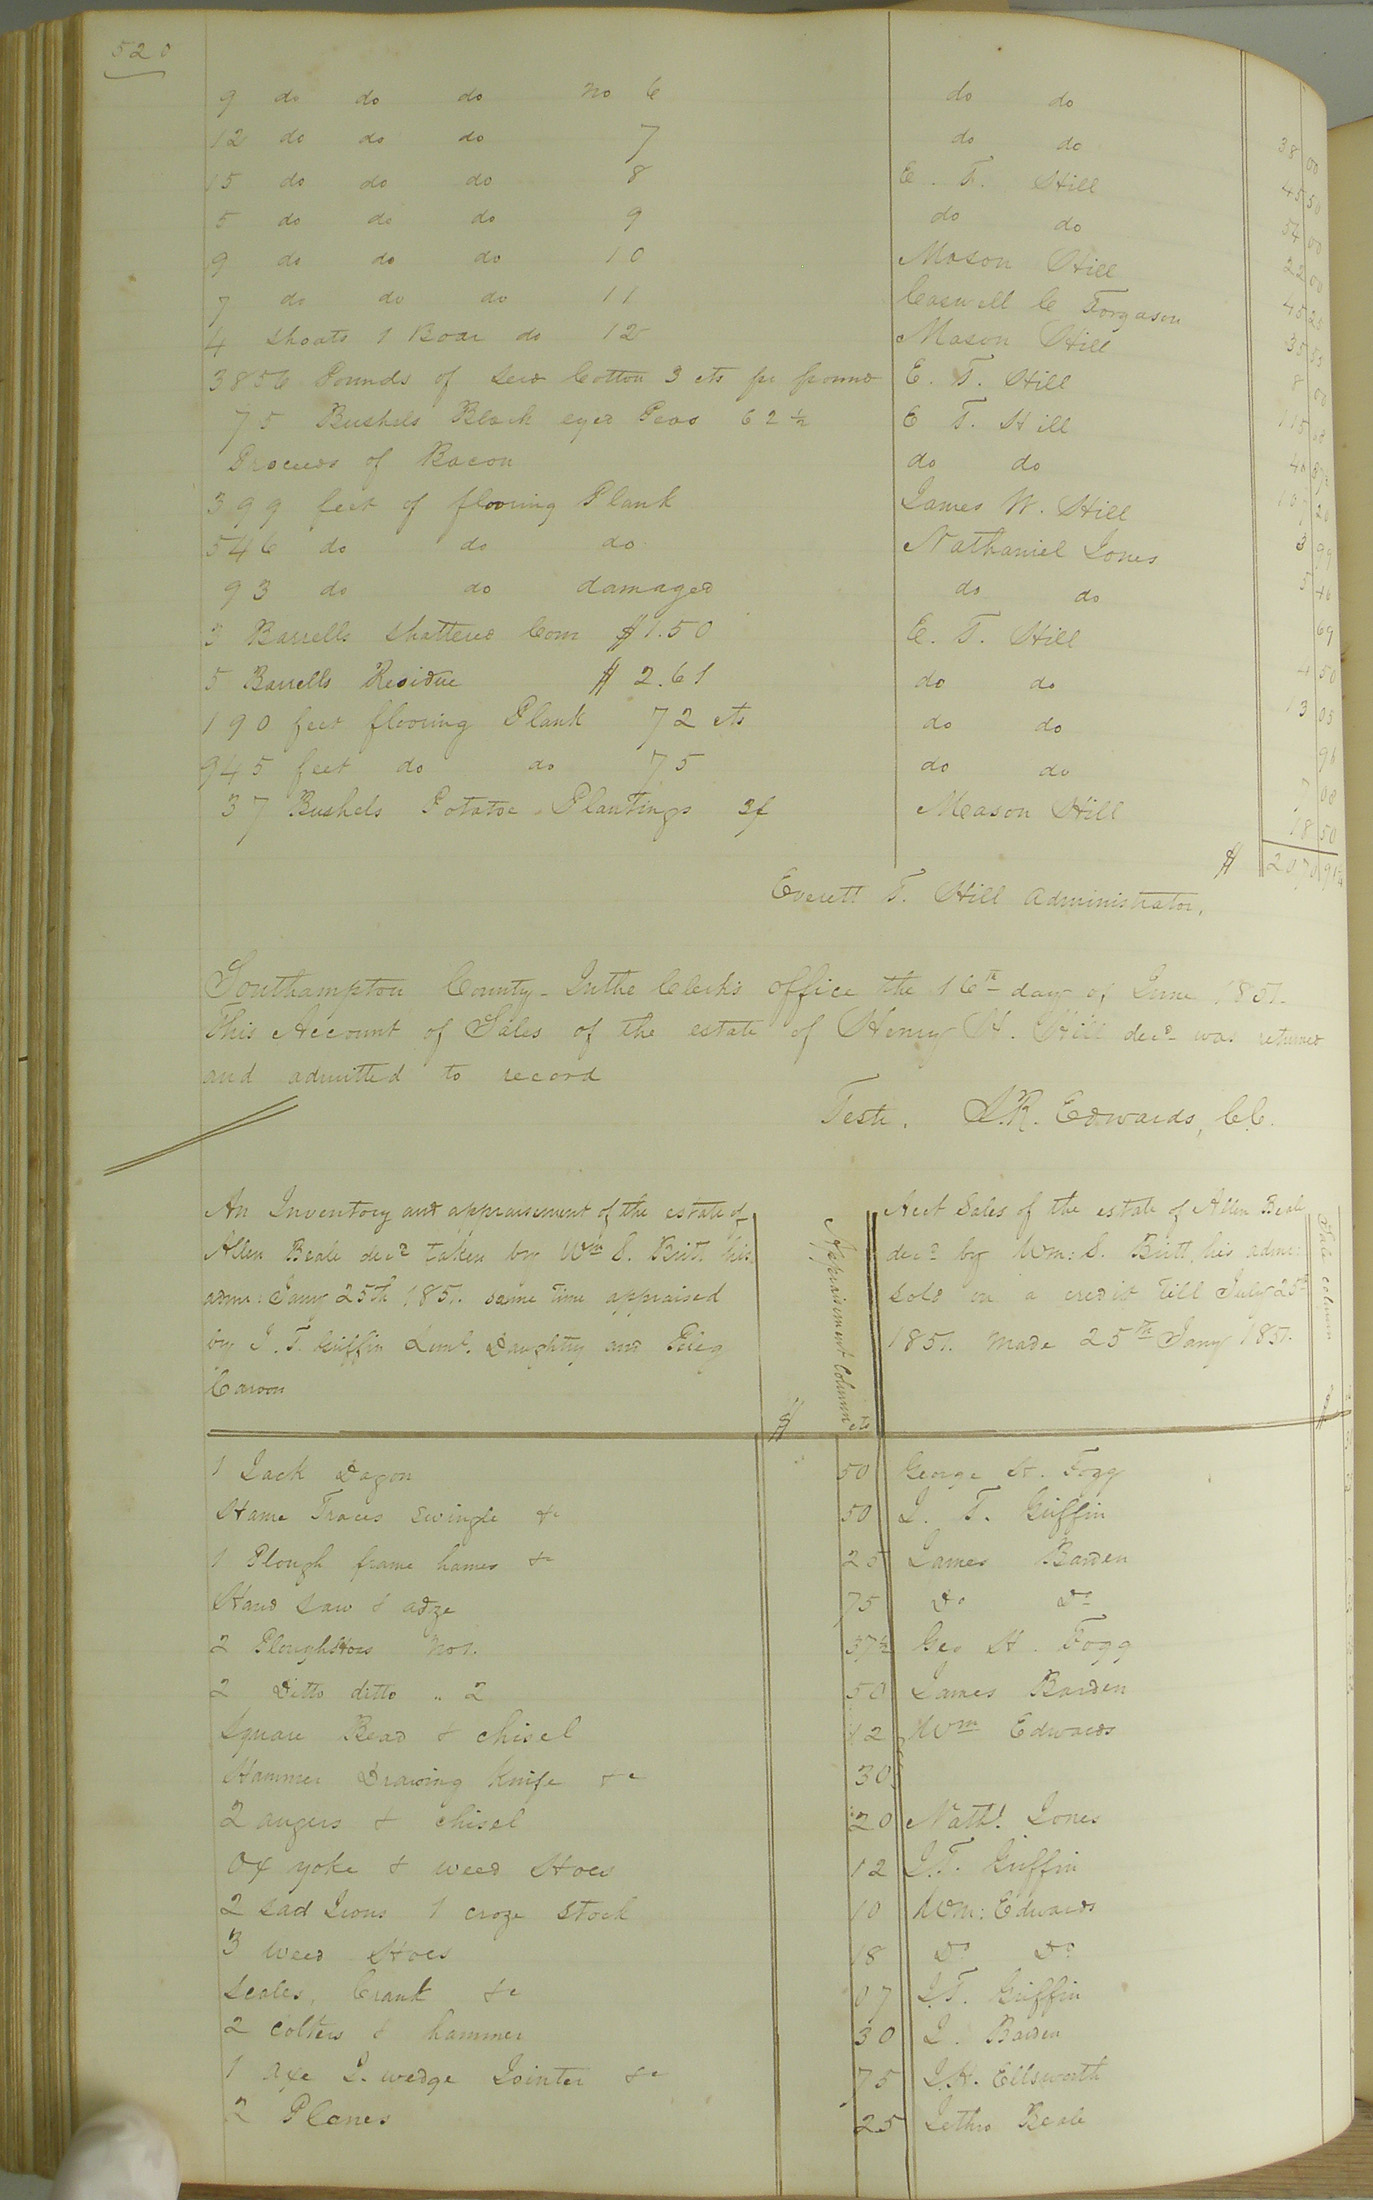 520
9 do do do No 6 do do 38 00
12 do do do 7 do do 45 50
15 do do do 8 E. T. Hill 54 00
5 do do do 9 do do 22 00
9 do do do 10 Mason Hill 45 25
7 do do do 11 Caswell C Forgason 35
4 Shoats 1 Boar do 12 Mason Hill 8 00
3856 Pounds of Seed Cotton 3 cts pr pound E. T. Hill 115 68
75 Bushels Black eyed Peas 62½ E T. Hill 46 87½
Proceeds of Bacon do do 107 20
399 feet of flooring Plank James W. Hill 3 99
546 do do do Nathaniel Jones 5 46
93 do do damaged do do 69
3 Barrells Shattered Corn $1.50 E. T. Hill 4 50
5 Barrells Residue $2.61 do do 13 05
190 feet flooring Plank 72 cts do do 96
945 feet do do 75 do do 7 08
37 Bushels Potatoe Plantings 3f Meason Hill 18 50
$
Everett T. Hill Administrator.
Southampton County - In the Clerk's office the 16th day of June 1851.
This Account of Sales of the estate of Henry H. Hill decd was returned
and admitted to record
Teste. L.R. Edwards, C.C.
An Inventory and appraisement of the estate of
Allen Beale decd taken by Wm S. Britt his
admr: Jany 25th 1851. same time appraised
by J. T. Griffin Daughtry and
Appraisement Column
$ cts
Acct Sales of the estate of Allen Beale
decd by Wm: S. Britt, his admr:
sold on a credit till July 25th
1851. made 25th Jany 1851.
Sale column
$
1 Jack Dagon 50 George H. Fogg
Hame Traces swingle &c 50 J. T. Griffin
1 Plough frame hames &c 25 James Barden
Hand saw & adze 75 Do Do
2 Ploughhoes No1. 37½ Geo H. Fogg
2 Ditto ditto " 2 50 James Barden
Square Bead & chisel 12 Wm Edwards
Hammer Drawing Knife &c 30
2 augers & chisel 20 Nathl. Jones
Ox yoke & weed Hoes 12 J.T. Griffin
2 sad Irons 1 croze stock 10 Wm: Edwards
3 weed Hoes 18 Do Do
Scales, Crank &c 07 J.T. Griffin
2 colters & hammer 30 J. Barden
1 axe I. wedge Jointer &c 75 J.H. Ellsworth
2 Planes 25 Jethro Beale